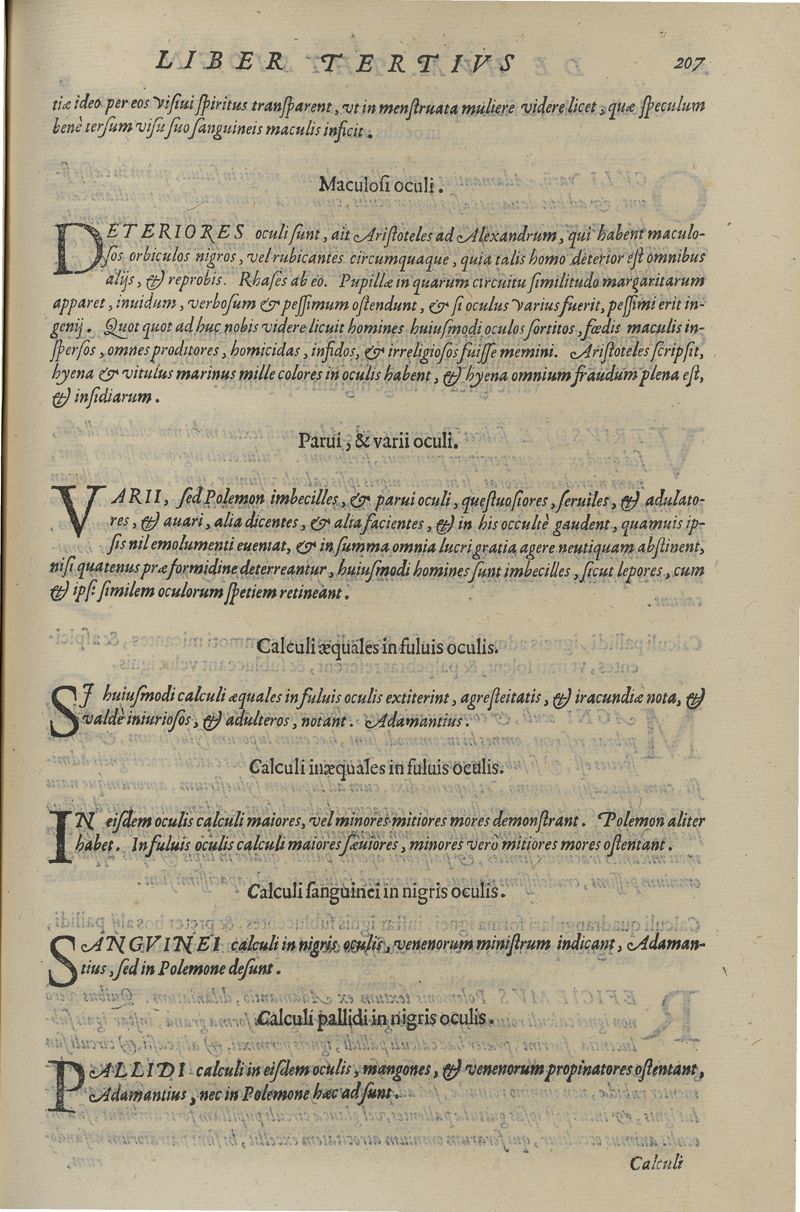 LIBER TERTIVS 207
tiæ ideo per eos visiui spiritus transparent, vt in menstruata muliere videre licet, quæ speculum
benè tersum visu suo sanguineis maculis inficit.
Maculosi oculi.
DETERIORES oculi sunt, ait Aristoteles ad Alexandrum, qui habent maculo-
sos orbiculos nigros, vel rubicantes circumquaque, quia talis homo deterior est omnibus
alijs, & reprobis. Rhases ab eo. Pupillæ in quarum circuitu similitudo margaritarum
apparet, inuidum, verbosum & pessimum ostendunt, & si oculus varius fuerit, pessimi erit in-
genij. Quot quot ad huc nobis videre licuit homines huiusmodi oculos sortitos, fœdis maculis in-
spersos, omnes proditores, homicidas, infidos, & irreligiosos fuisse memini. Aristoteles scripsit,
hyena & vitulus marinus mille colores in oculis habent, & hyena omnium fraudum plena est,
& insidiarum.
Parui, & varii oculi.
VARII, sed Polemon imbecilles, & parui oculi, questuosiores, seruiles, & adulato-
res, & auari, alia dicentes, & alia facientes, & in his occultè gaudent, quamuis ip-
sis nil emolumenti eueniat, & in summa omnia lucri gratia agere neutiquam abstinent,
nisi quatenus præ formidine deterreantur, huiusmodi homines sunt imbecilles, sicut lepores, cum
& ipsi similem oculorum spetiem retineant.
Calculi æquales in fuluis oculis.
SI huiusmodi calculi æquales in fuluis oculis extiterint, agresteitatis, & iracundiæ nota, &
valdè iniuriosos, & adulteros, notant. Adamantius.
Calculi inæquales in fuluis oculis.
IN eisdem oculis calculi maiores, vel minores mitiores mores demonstrant. Polemon aliter
habet. In fuluis oculis calculi maiores sæuiores, minores verò mitiores mores ostentant.
Calculi sanguinei in nigris oculis.
SANGVINEI calculi in nigris oculis, venenorum ministrum indicant, Adaman-
tius, sed in Polemone desunt.
Calculi pallidi in nigris oculis.
PALLIDI calculi in eisdem oculis, mangones, & venenorum propinatores ostentant,
Adamantius, nec in Polemone hæc adsunt.
Calculi